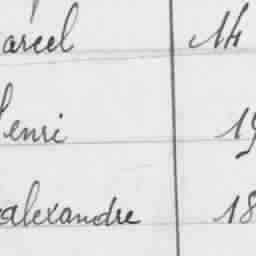 arcel 14
Henri 19
alexandre 18